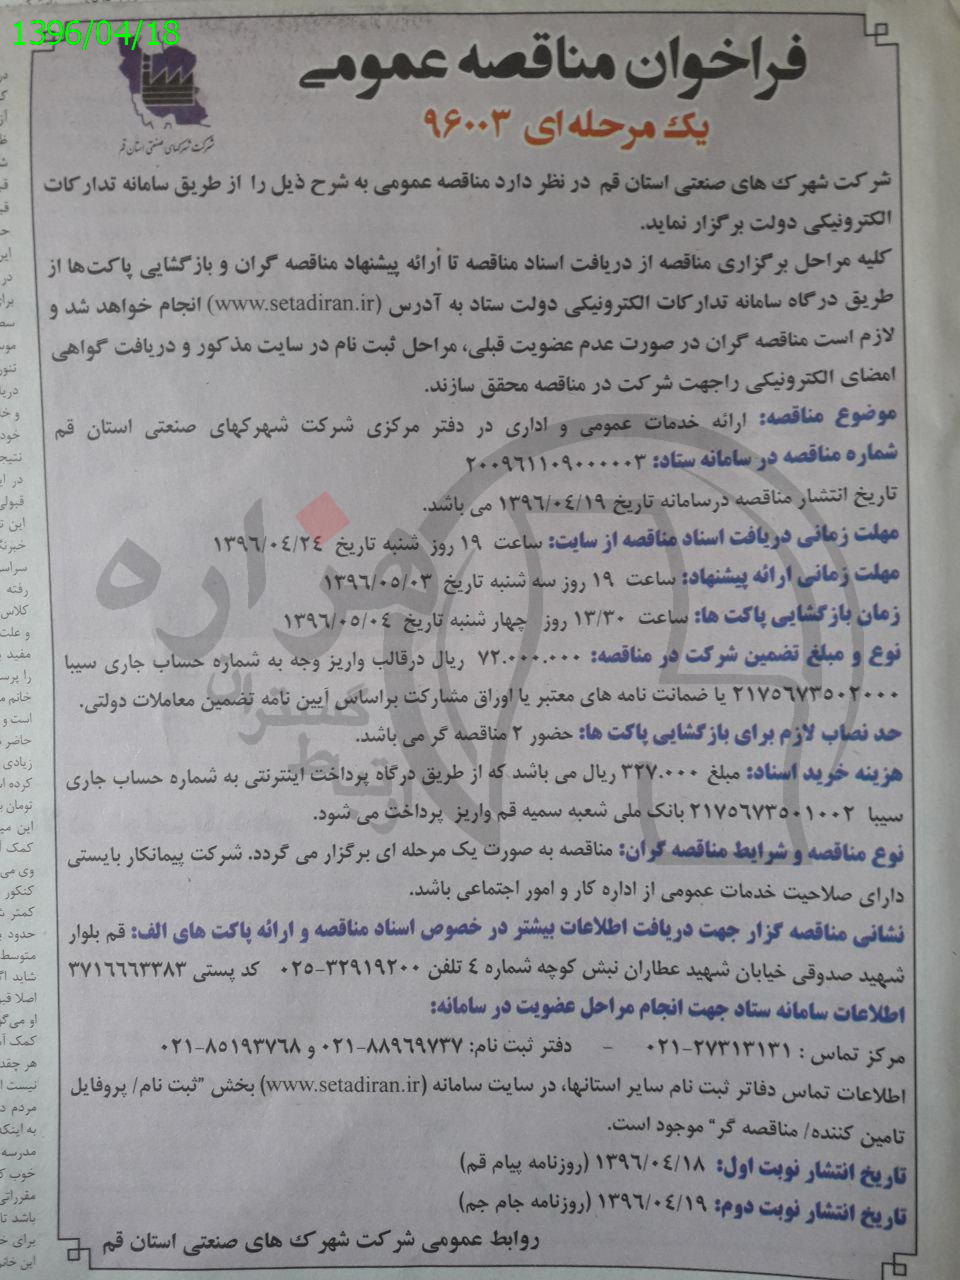 1396/04/18
فراخوان مناقصه عمومی
یک مرحله ای ۹۶۰۰۳
شرکت شهرکهای صنعتی استان قم
شرکت شهرک های صنعتی استان قم در نظر دارد مناقصه عمومی به شرح ذیل را از طریق سامانه تدارکات
الکترونیکی دولت برگزار نماید.
کلیه مراحل برگزاری مناقصه از دریافت اسناد مناقصه تا ارائه پیشنهاد مناقصه گران و بازگشایی پاکت‌ها از
طریق درگاه سامانه تدارکات الکترونیکی دولت ستاد به آدرس (www.setadiran.ir) انجام خواهد شد و
لازم است مناقصه گران در صورت عدم عضویت قبلی، مراحل ثبت نام در سایت مذکور و دریافت گواهی
امضای الکترونیکی راجهت شرکت در مناقصه محقق سازند.
موضوع مناقصه: ارائه خدمات عمومی و اداری در دفتر مرکزی شرکت شهرکهای صنعتی استان قم
شماره مناقصه در سامانه ستاد: ۲۰۰۹۶۱۱۰۹۰۰۰۰۰۳
تاریخ انتشار مناقصه درسامانه تاریخ ۱۳۹۶/۰۴/۱۹ می باشد.
مهلت زمانی دریافت اسناد مناقصه از سایت: ساعت ۱۹ روز شنبه تاریخ ۱۳۹۶/۰۴/۲۴
مهلت زمانی ارائه پیشنهاد: ساعت ۱۹ روز سه شنبه تاریخ ۱۳۹۶/۰۵/۰۳
زمان بازگشایی پاکت ها: ساعت ۱۳/۳۰ روز چهار شنبه تاریخ ۱۳۹۶/۰۵/۰۴
نوع و مبلغ تضمین شرکت در مناقصه: ۷۲.۰۰۰.۰۰۰ ریال درقالب واریز وجه به شماره حساب جاری سیبا
۲۱۷۵۶۷۳۵۰۲۰۰۰ یا ضمانت نامه های معتبر یا اوراق مشارکت براساس آیین نامه تضمین معاملات دولتی.
حد نصاب لازم برای بازگشایی پاکت ها: حضور ۲ مناقصه گر می باشد.
هزینه خرید اسناد: مبلغ ۳۲۷.۰۰۰ ریال می باشد که از طریق درگاه پرداخت اینترنتی به شماره حساب جاری
سیبا ۲۱۷۵۶۷۳۵۰۱۰۰۲ بانک ملی شعبه سمیه قم واریز پرداخت می شود.
نوع مناقصه و شرایط مناقصه گران: مناقصه به صورت یک مرحله ای برگزار می گردد. شرکت پیمانکار بایستی
دارای صلاحیت خدمات عمومی از اداره کار و امور اجتماعی باشد.
نشانی مناقصه گزار جهت دریافت اطلاعات بیشتر در خصوص اسناد مناقصه و ارائه پاکت های الف: قم بلوار
شهید صدوقی خیابان شهید عطاران نبش کوچه شماره ۴ تلفن ۳۲۹۱۹۲۰۰-۰۲۵ کد پستی ۳۷۱۶۶۶۳۳۸۳
اطلاعات سامانه ستاد جهت انجام مراحل عضویت در سامانه:
مرکز تماس : ۲۷۳۱۳۱۳۱-۰۲۱ - دفتر ثبت نام: ۸۸۹۶۹۷۳۷-۰۲۱ و ۸۵۱۹۳۷۶۸-۰۲۱
اطلاعات تماس دفاتر ثبت نام سایر استانها، در سایت سامانه (www.setadiran.ir) بخش "ثبت نام/ پروفایل
تامین کننده/ مناقصه گر" موجود است.
تاریخ انتشار نوبت اول: ۱۳۹۶/۰۴/۱۸ (روزنامه پیام قم)
تاریخ انتشار نوبت دوم: ۱۳۹۶/۰۴/۱۹ (روزنامه جام جم)
روابط عمومی شرکت شهرک های صنعتی استان قم
هزاره